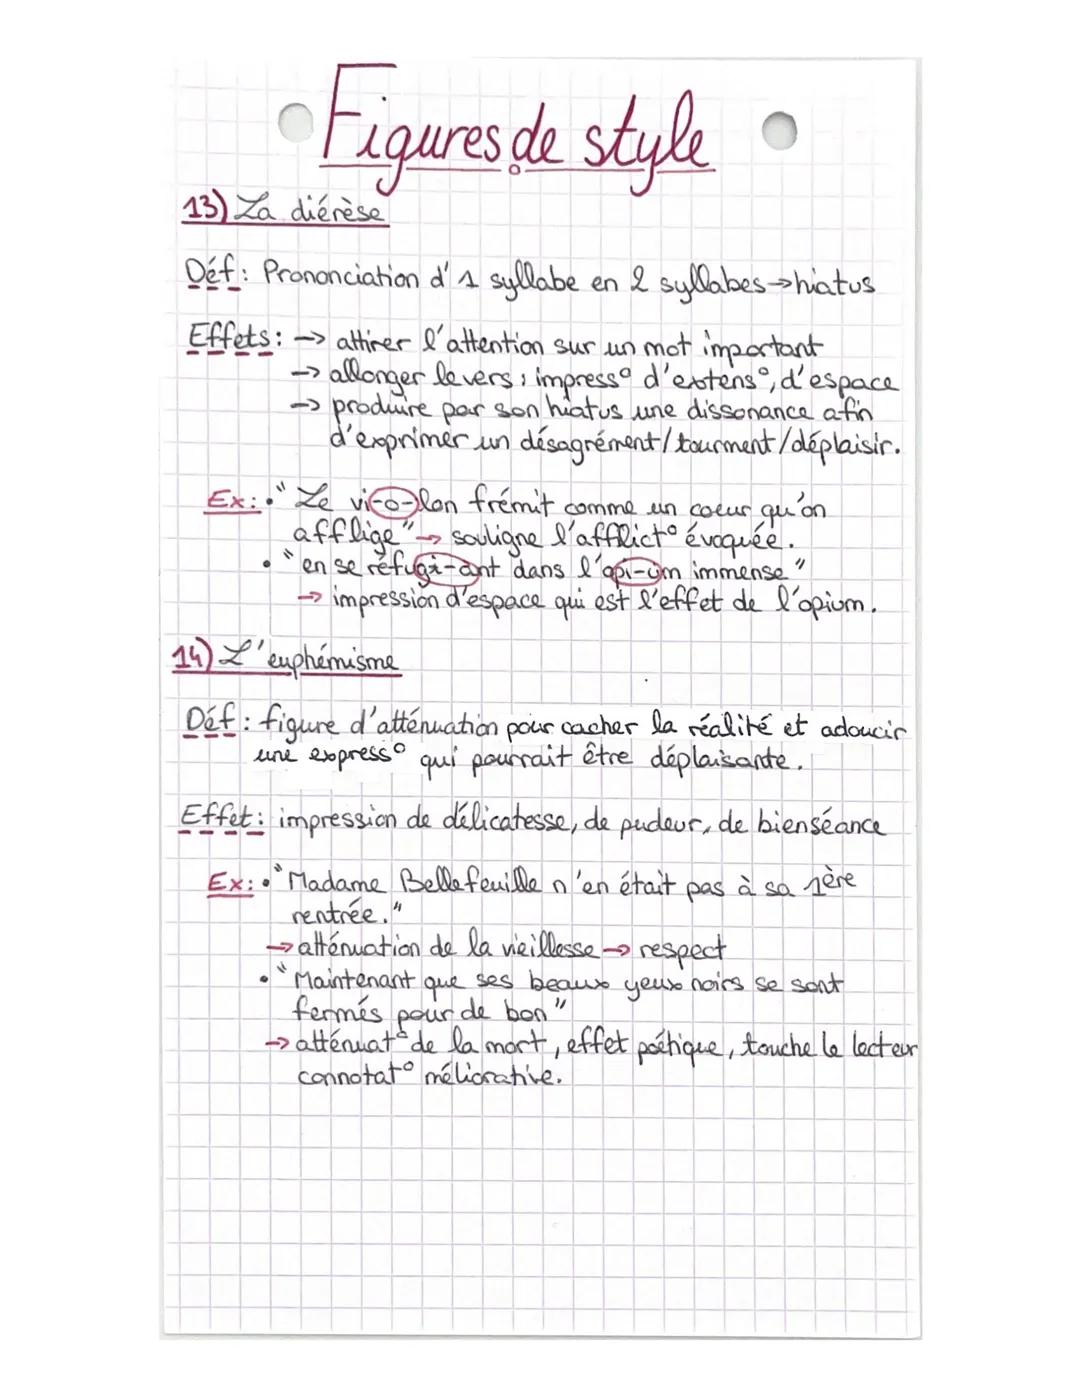 Figures de style
13) La diérèse
Déf: Prononciation d'1 syllabe en 2 syllabes → hiatus
Effets: → attirer l'attention sur un mot important
→ allonger le vers ; impress° d'extens°, d'espace
→ produire par son hiatus une dissonance afin
d'exprimer un désagrément/tourment/déplaisir.
Ex: • "Le vi-o-lon frémit comme un coeur qu'on
afflige" → souligne l'afflict° évoquée.
• "en se réfugi-ant dans l'opi-um immense"
→ impression d'espace qui est l'effet de l'opium.
14) L'euphémisme
Déf: figure d'atténuation pour cacher la réalité et adoucir
une express° qui pourrait être déplaisante.
Effet: impression de délicatesse, de pudeur, de bienséance
Ex: • "Madame Bellefeuille n'en était pas à sa 1ère
rentrée."
→ atténuation de la vieillesse → respect
• "Maintenant que ses beaux yeux noirs se sont
fermés pour de bon"
→ atténuat° de la mort, effet poétique, touche le lecteur
connotat° méliorative.